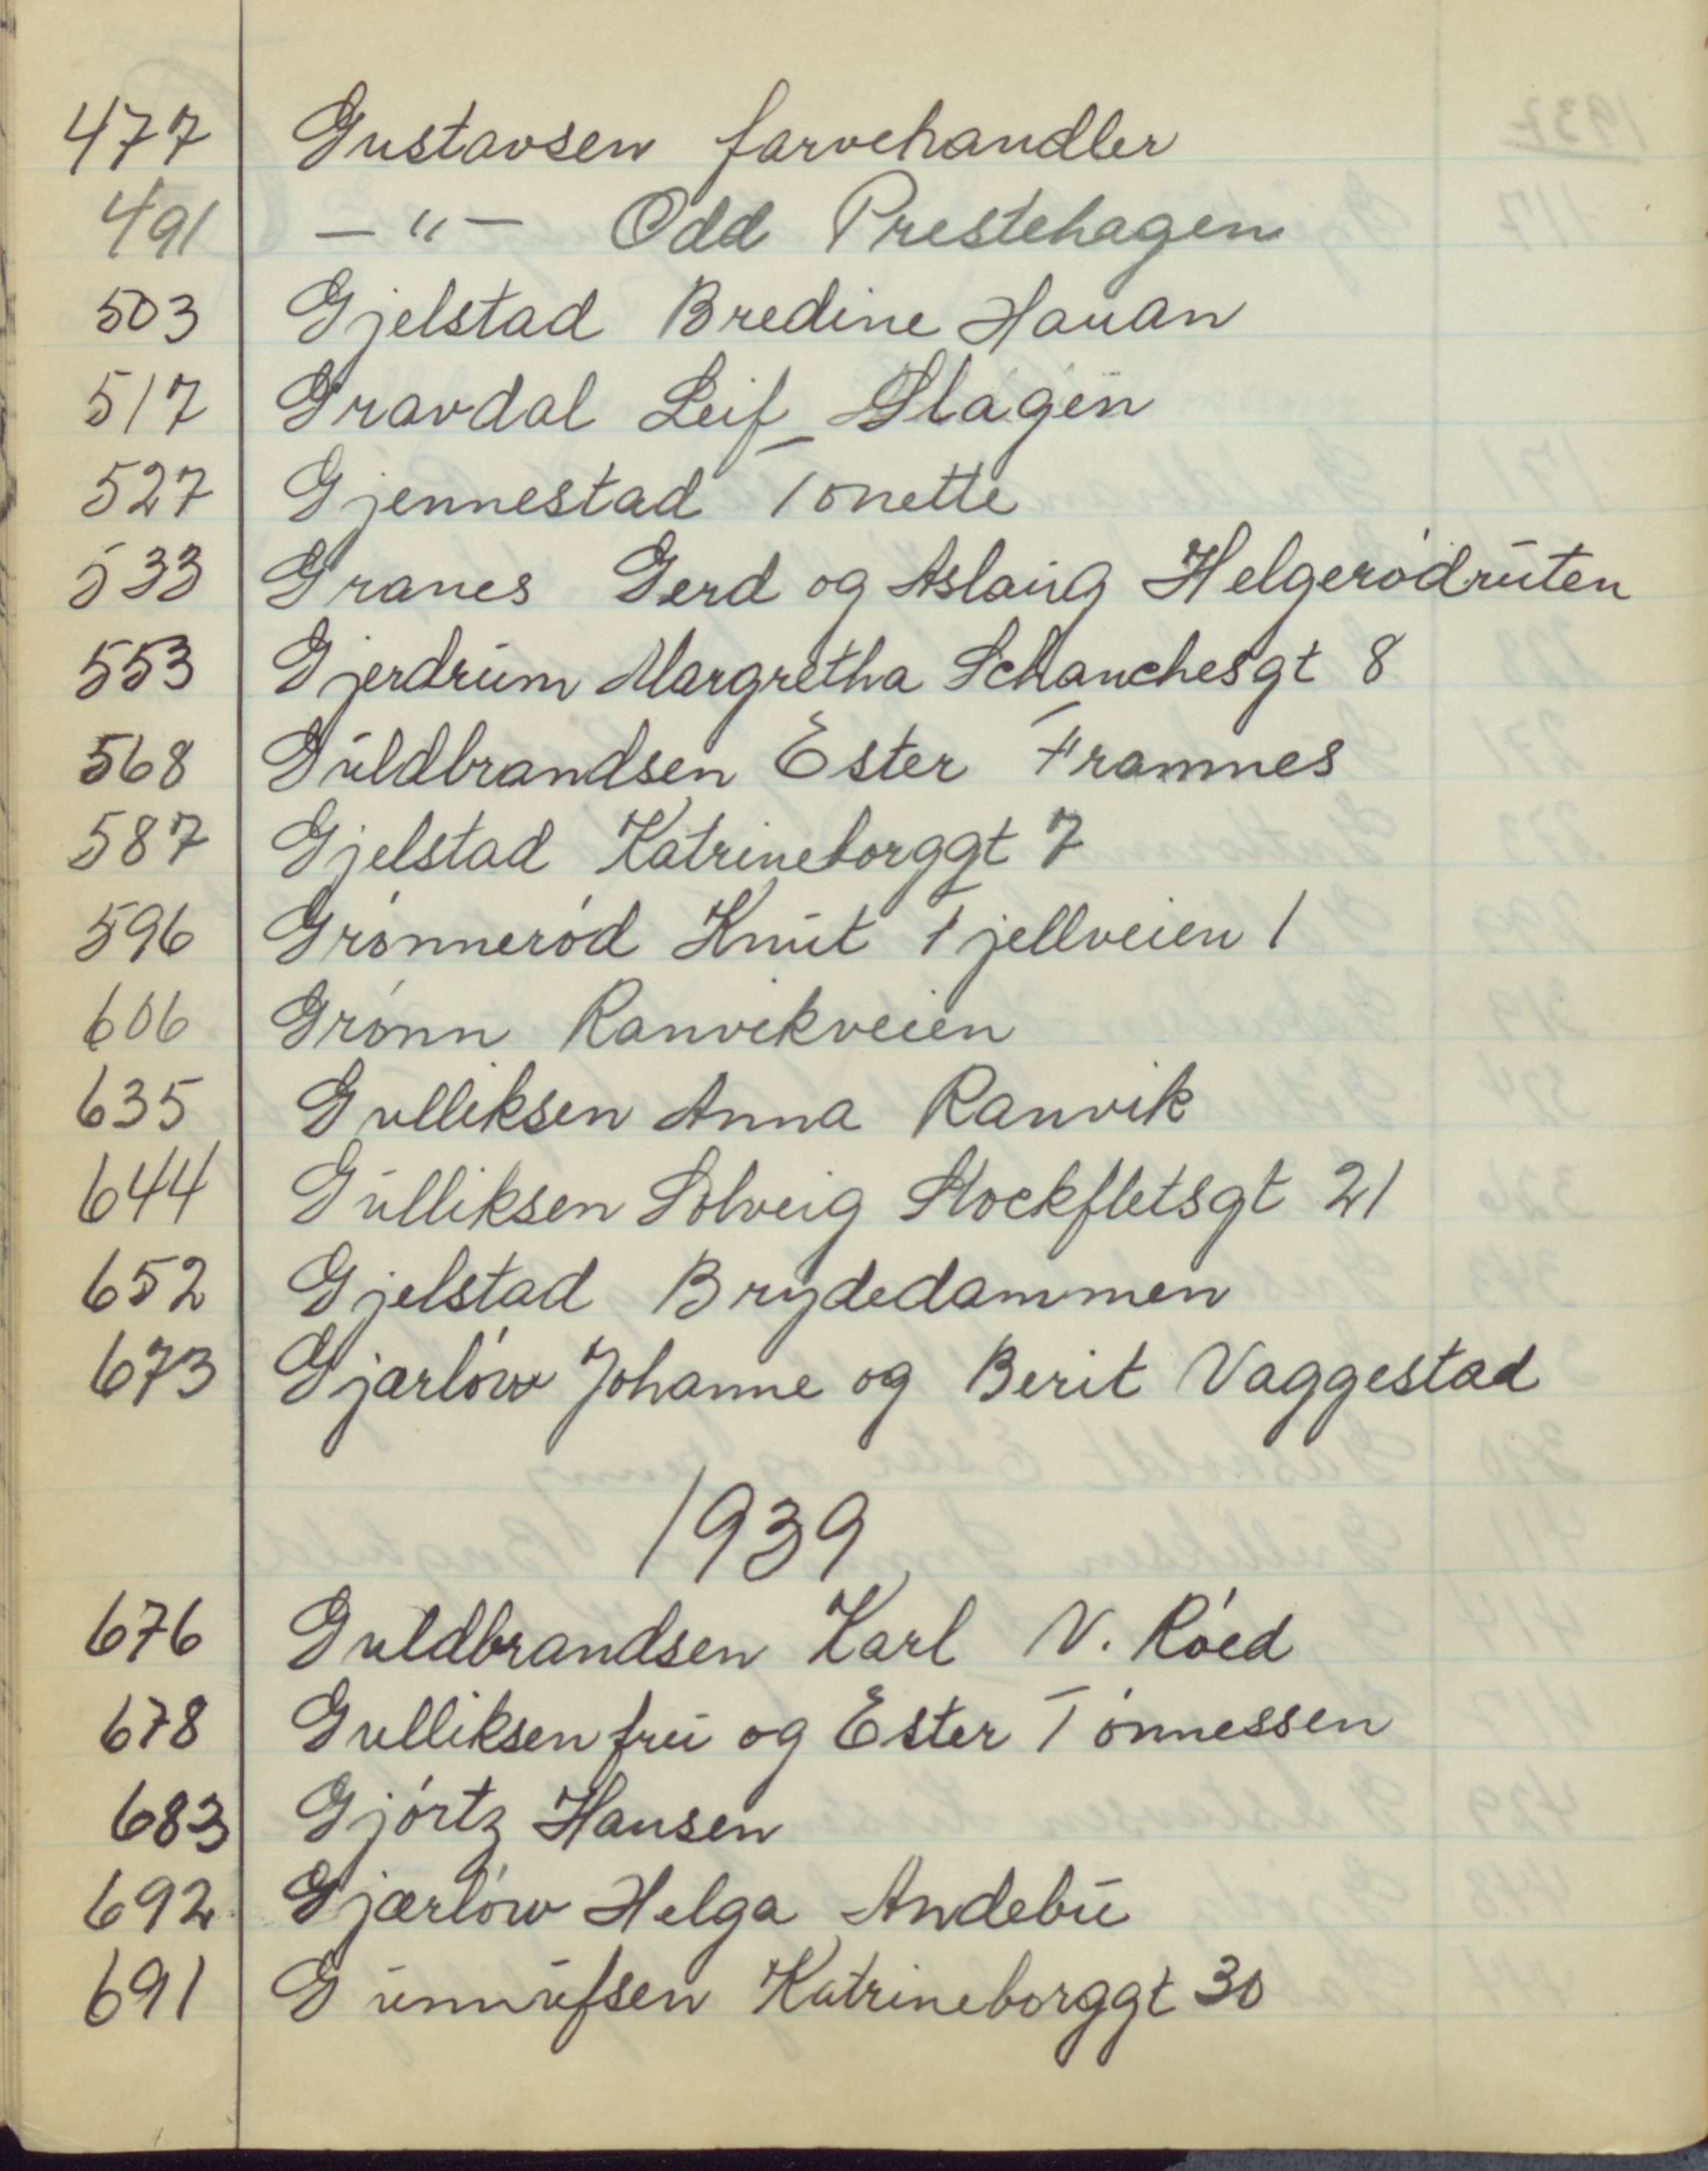 477 Gustavsen farvehandler
491 — " — Odd Prestehagen
503 Gjelstad Bredine Hauan
517 Gravdal Leif Slagen
527 Gjennestad Tonette
533 Granes Gerd og Aslaug Helgerødruten
553 Gjerdrum Margretha Schanchesgt 8
568 Guldbrandsen Ester Framnes
587 Gjelstad Katrineborggt 7
596 Grønnerød Knut Fjellveien 1
606 Grønn Ranvikveien
635 Gulliksen Anna Ranvik
644 Gulliksen Solveig Stockfletsgt 21
652 Gjelstad Brydedammen
673 Gjærløw Johanne og Berit Vaggestad
1939
676 Guldbrandsen Karl V. Røed
678 Gulliksen fru og Ester Tønnessen
683 Gjørtz Hansen
692 Gjærløw Helga Andebu
691 Gunnufsen Katrineborggt 30